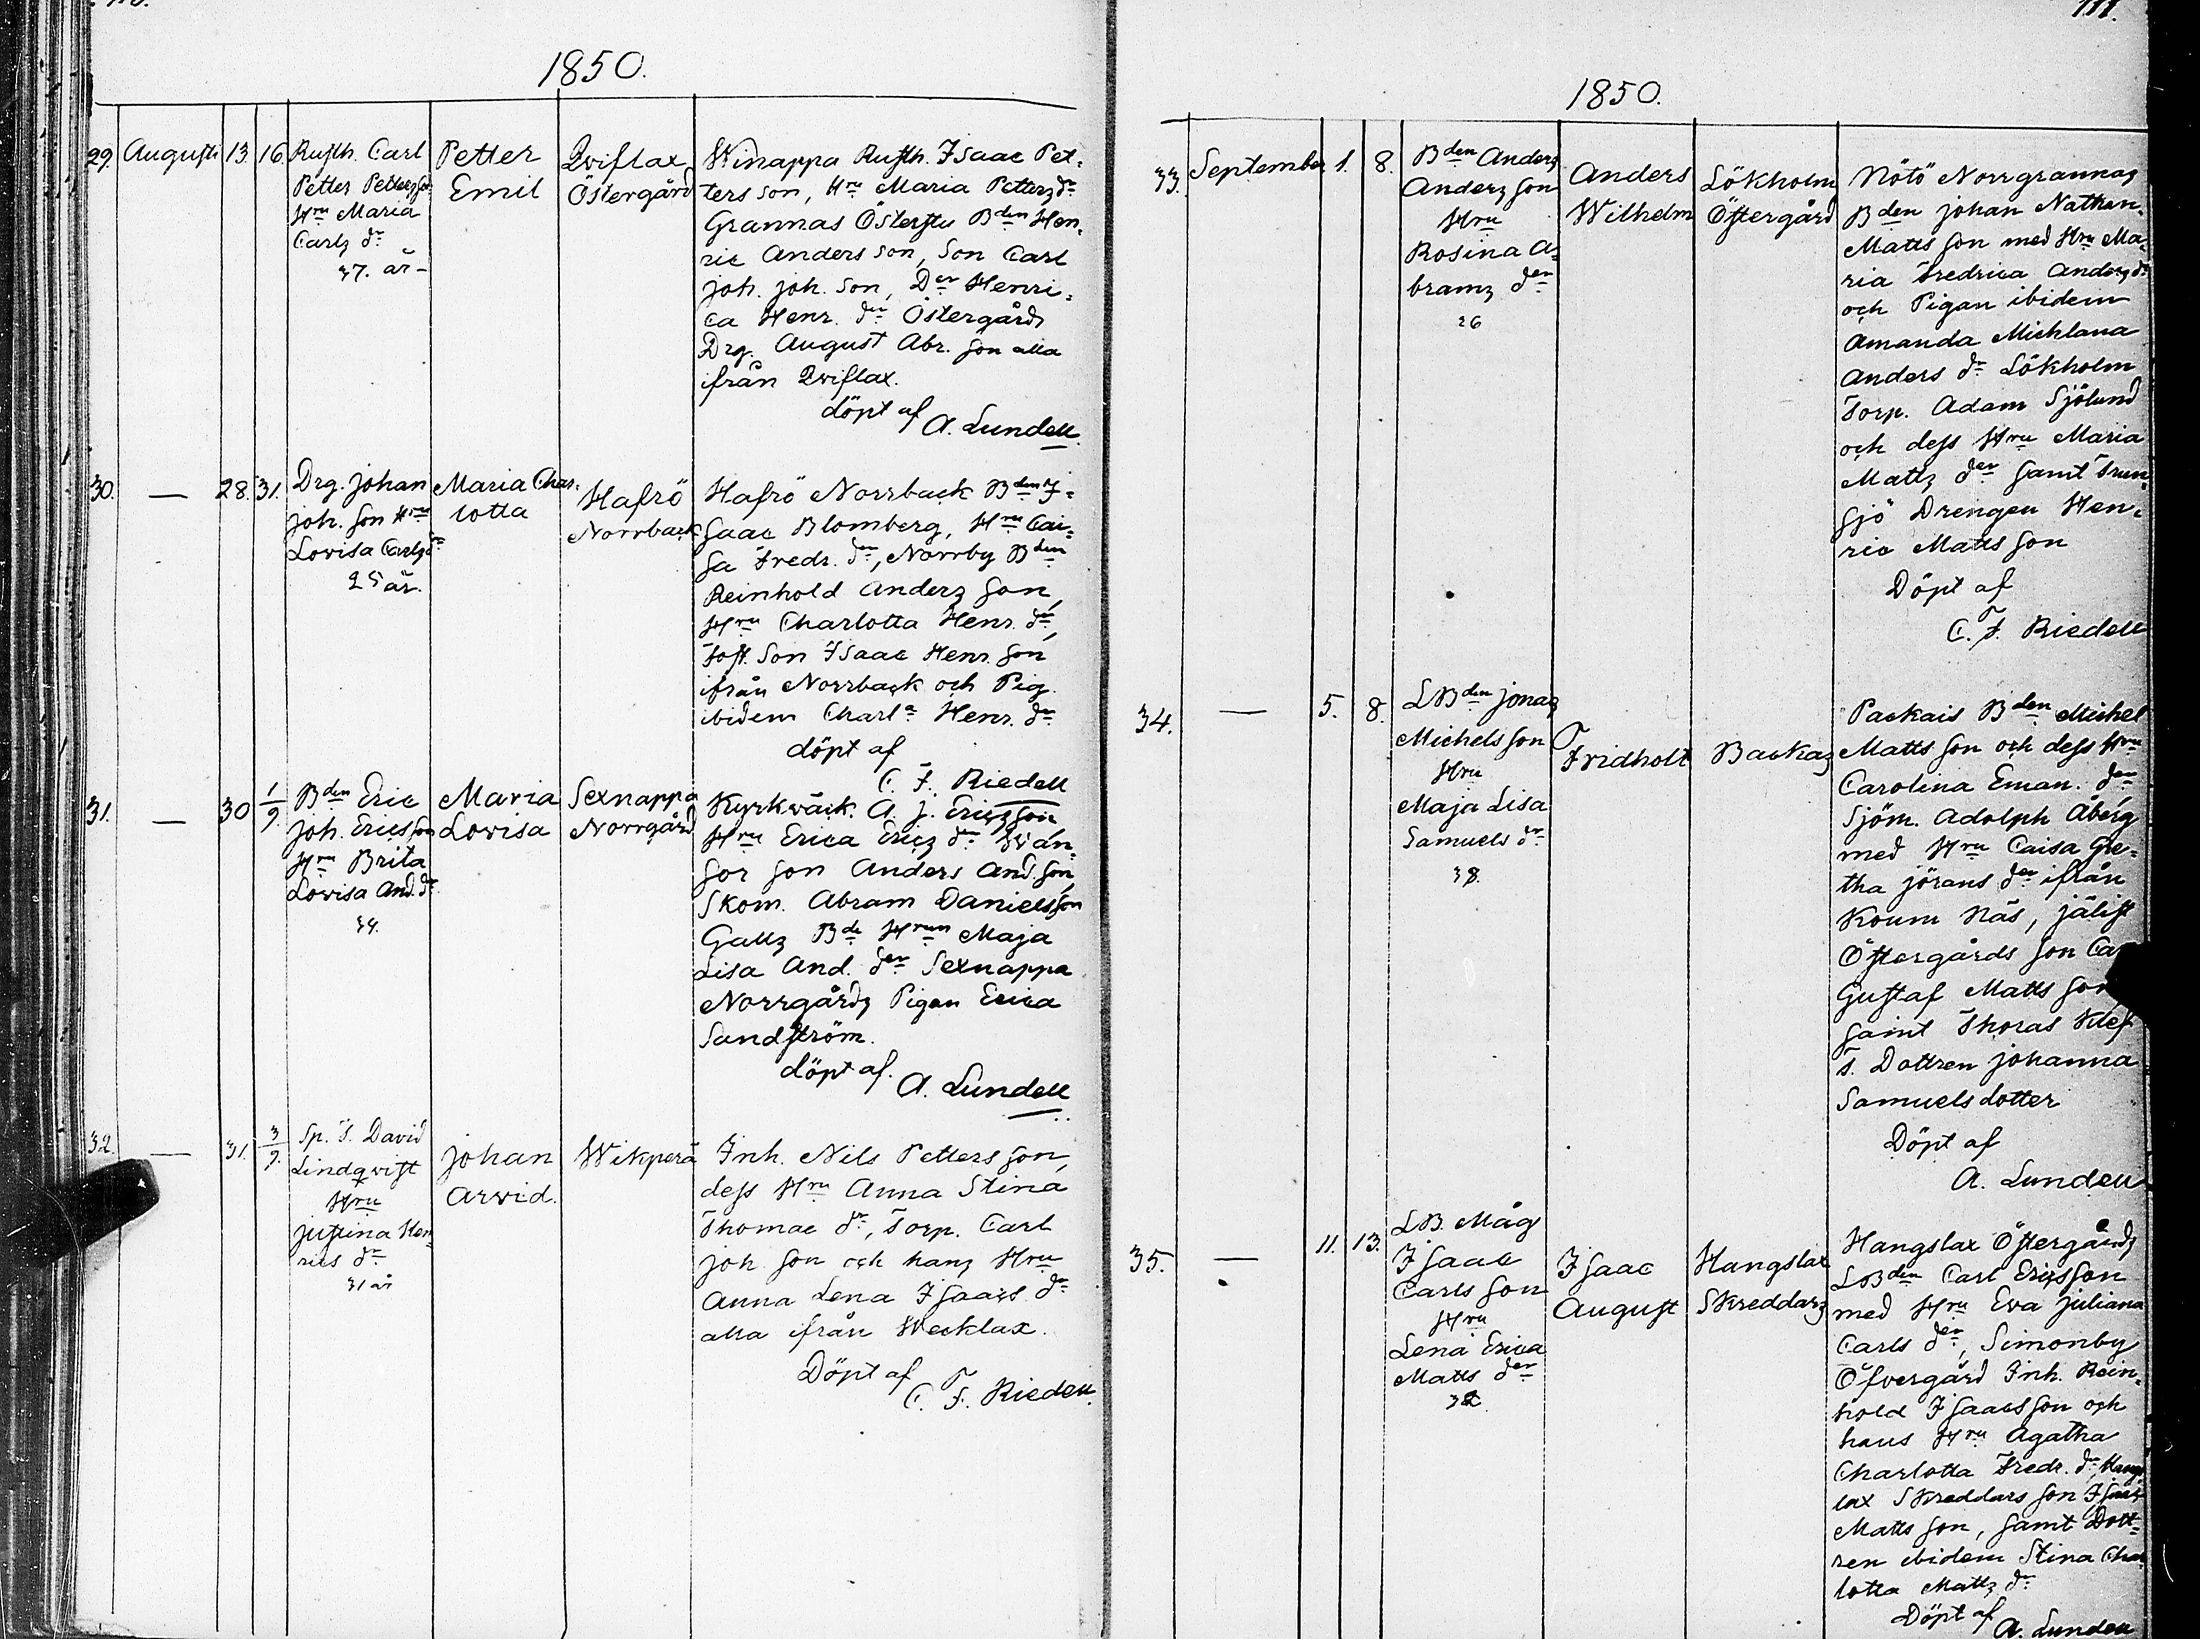 1850.
29. Augusti 13. 16.
Rusth. Carl
Petter Petterz son
Hru Maria
Carlz dr
37. år
Petter
Emil
Qviflax
Östergård
Winappa Rusth. Isaac Pet-
ters son, Hru Maria Petterz dr
Grannas Österstu Bden Hen-
ric Anders son, Son Carl
Joh. Joh. Son, Der Henri-
ca Henr. dr Östergårds
Drg. August Abr. son alla
ifrån Qviflax.
döpt af
A. Lundell.
30. — 28. 31.
Drg. Johan
Joh. son Hru
Lovisa Carlz dr
25 år.
Maria Char-
lotta
Hafrö
Norrback
Hafrö Norrback Bden I-
saac Blomberg, Hru Cai-
sa Fredr. dr, Norrby Bden
Reinhold Anderz son,
Hru Charlotta Henr. dr,
Son Isaac Henr. son
ifrån Norrback och Pig.
ibidem Charla Henr. dr
döpt af
C. F. Riedell
31. — 30 1/9.
Bden Eric
Joh. Ericsson
Hru Brita
Lovisa And. dr
34.
Maria
Lovisa
Sexnappa
Norrgård
Kyrkväck. A. J. Ericzson
Hru Erica Ericz dr Wån-
sor son Anders And. son,
Skom. Abram Danielsson
Gallz Bde Hrun Maja
Lisa And. der Sexnappa
Norrgårdz Pigan Erica
Sandström.
döpt af.
A. Lundell
32. — 31. 3/9.
Sp. T. David
Lindqvist
Hru
Justina Hen-
rics dr
31 år
Johan
Arvid.
Wikperä
Inh. Nils Petters son,
dess Hru Anna Stina
Thomae dr, Torp. Carl
Joh son och hanz Hru
Anna Lena Isaacs dr
alla ifrån Wecklax.
Döpt af
C. F. Riedell.
111.
1850.
33. September 1. 8.
Bden Anders
Anderz son
Hru
Rosina A-
bramz der
26
Anders
Wilhelm
Lökholm
Östergård
Nötö Norrgrannaz
Bden Johan Nathan.
Matts son med Hru Ma-
ria Fredrica Anderz dr
och Pigan ibidem
Amanda Michlana
Anders dr Lökholm
Torp. Adam Sjölund
och dess Hru Maria
Mattz der samt Trun-
sjö Drengen Hen-
ric Matts son
Döpt af
C. F. Riedell
34. — 5. 8.
LBden Jonaz
Michels son
Hru
Maja Lisa
Samuels dr
38.
Fridholt
Backaz
Packais Bden Michel
Matts son och dess Hru
Carolina Eman. der
Sjöm. Adolph Åberg
med Hru Caisa Gre-
tha Jörans der ifrån
Koum Näs, Jälist
Östergårds son Ca
Gustaf Matts son
samt Thoras Klef
T. Dottren Johanna
Samuels dotter
Döpt af
A. Lundell
35. — 11. 13.
LB. Måg
Isaac
Carls son
Hru
Lena Erica
Matts der
32
Isaac
August
Hangslax
Skreddarz
Hangslax Östergårdz
LBden Carl Ericsson
med Hru Eva Juliana
Carls der, Simonby
Öfvergård Inh. Rein-
hold Isaacsson och
hans Hru Agatha
Charlotta Fredr. dr, Hangs
lax Skreddars son Isaac
Matts son, samt Dott-
ren ibidem Stina Char
lotta Mattz dr
Döpt af
A. Lundell